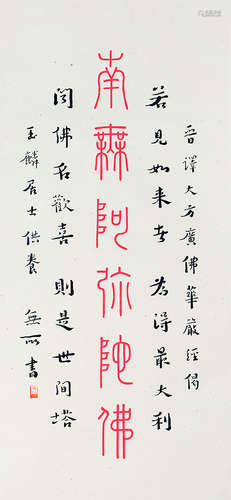 晋譯大方廣佛華嚴經偈
若見如来者為得最大利
南無阿弥陀佛
聞佛名歡喜則是世間塔
玉麟居士供養 無所書